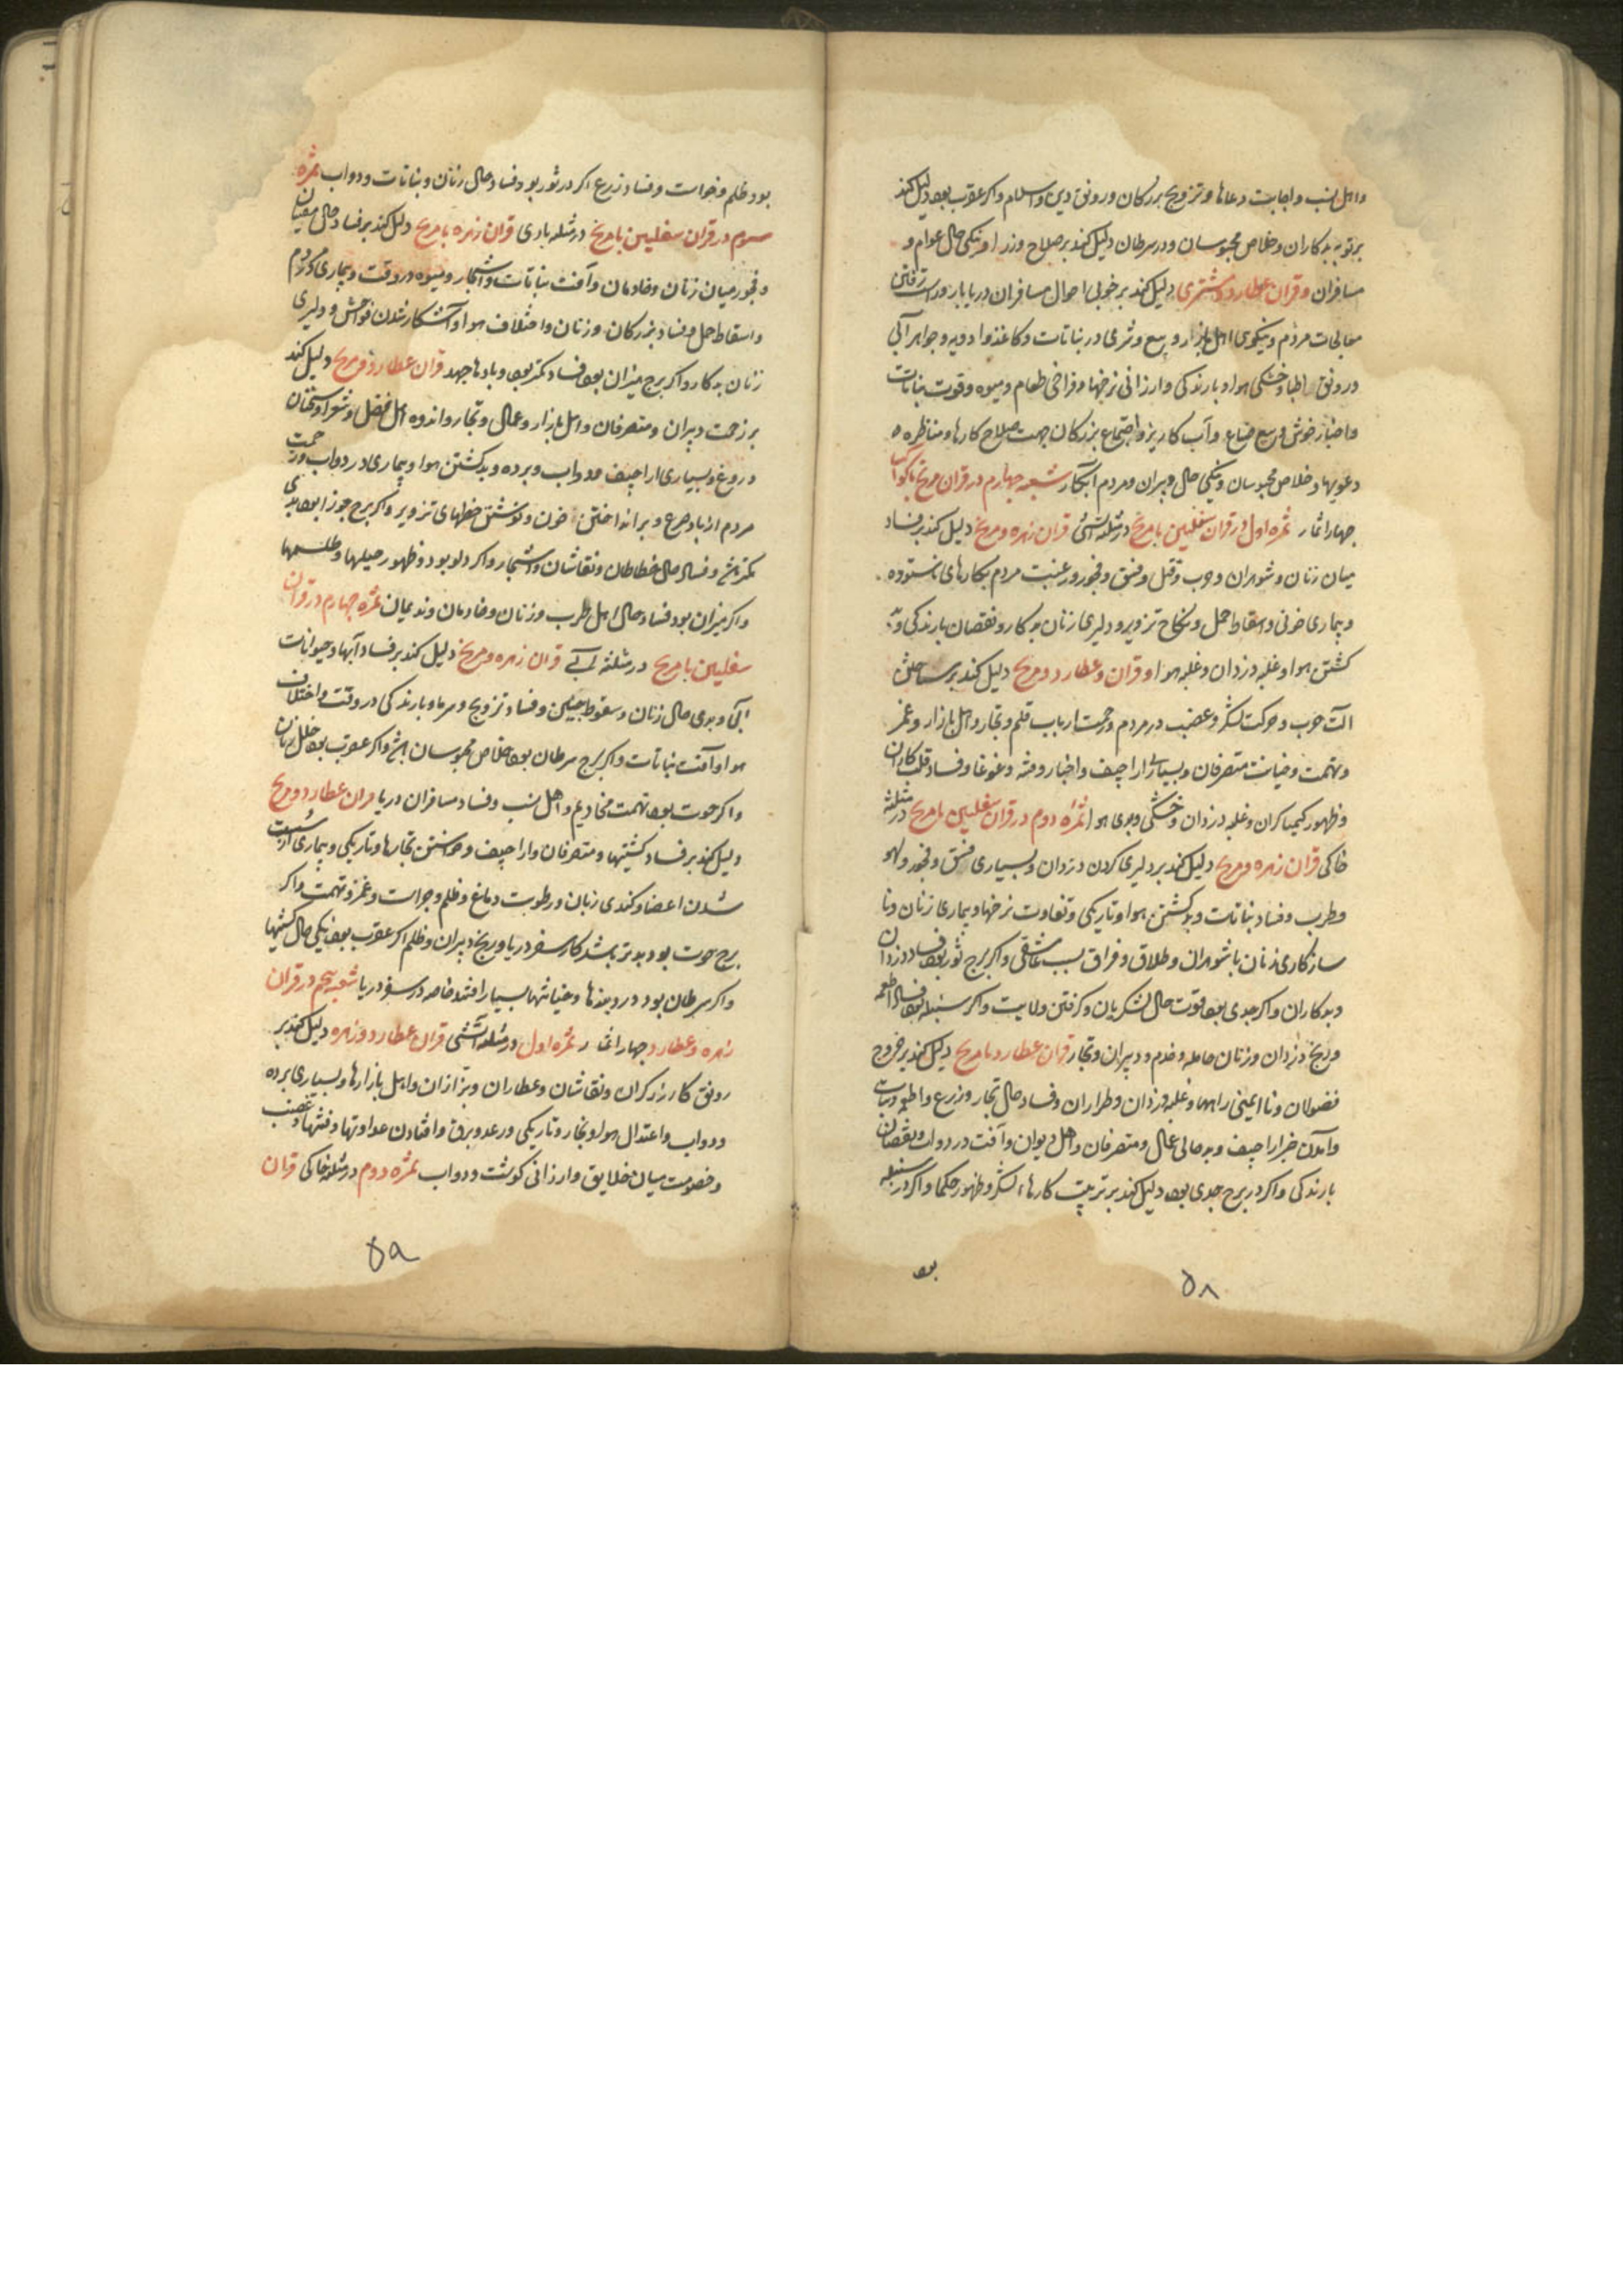 و اهل نسب و اجابت دعاها و تزویج بزرکان و رونق دین و اسلام و اکر عقرب بود دلیل کند
بر توبه بدکاران و خلاص محبوسان و در سرطان دلیل کند بر صلاح وزرا و نیکی حال عوام و
مسافران و قران عطارد و مشتری دلیل کند بر خوبی احوال مسافران دریا بار و راست رفتن
معالجات مردم و نیکوی اهل بازار و بیع و شری در نباتات و کاغذ و ادویه و جواهر آبی
و رونق اطبا و خنکی هوا و بارندکی و ارزانی نرخها و فراخی طعام و میوه و قوت نباتات
و اخبار خوش و ربیع ضیاع و آب کاریز و اجتماع بزرکان جهت صلاح کارها و مناظره
دعویها و خلاص محبوسان و نیکی حال دبیران و مردم آبکار شعبه چهارم در قران مریخ با کواکب
چهار اثمار ثمره اول در قران سفلیین با مریخ در مثلثه آتشی قران زهره و مریخ دلیل کند بر فساد
میان زنان و شوهران و حرب و قتل و فسق و فجور و رغبت مردم بکارهای ناستوده
و بیماری خونی و اسقاط حمل و نکاح تزویر و دلیری زنان بدکار و نقصان بارندکی و بد
کشتن هوا و غلبه دزدان و غلبه هوا و قران عطارد و مریخ دلیل کند بر ساختن
آلت حرب و حرکت لشکر و غضب در مردم و زحمت ارباب قلم و تجار و اهل بازار و غمز
و تهمت و خیانت متصرفان و بسیاری اراجیف و اخبار و فتنه و غوغا و فساد قلب کاران
و ظهور کیمیاکران و غلبه دزدان و خشکی و بدی هوا ثمره دوم در قران سفلیین با مریخ در مثلثه
خاکی قران زهره و مریخ دلیل کند بر دلیری کردن دزدان و بسیاری فسق و فجور و لهو
و طرب و فساد نباتات و بد کشتن هوا و تاریکی و تفاوت نرخها و بیماری زنان و نا
سازکاری زنان با شوهران و طلاق و فراق بسبب عاشقی و اکر برج ثور بود فساد دزدان
و بدکاران و اکر جدی بود قوت حال لشکریان و کرفتن ولایت و اکر سنبله بود فساد اطعمه
و رنج دزدان و زنان حامله و خدم و دبیران و تجار قران عطارد با مریخ دلیل کند بر خروج
فضولان و ناایمنی راهها و غلبه دزدان و طراران و فساد حال تجار و زرع و اطعمه
و آمدن خبر اراجیف و بدحالی عمال و متصرفان و اهل دیوان و آفت در دواب و نقصان
بارندکی و اکر در برج جدی بود دلیل کند بر تربیت کارهاء لشکر و ظهور حکما و اکر در سنبله
بود
۵۸
بود ظلم و خوات و فساد زرع اکر در ثور بود فساد حال زنان و نباتات و دواب ثمره
سوم در قران سفلیین با مریخ در مثلثه بادی قران زهره با مریخ دلیل کند بر فساد حال مغنیان
و فجور میان زنان و خادمان و آفت نباتات و اشجار و میوه در وقت و بیماری کودم
و اسقاط حمل و فساد بزرکان و زنان و اختلاف هوا و آشکار شدن فواحش و دلیری
زنان بدکار و اکر برج میزان بود فساد کمتر بود و بادها جهد قران عطارد و مریخ دلیل کند
بر زحمت دبیران و متصرفان و اهل بازار و عمال و تجار و اندوه اهل فضل و شعرا و سخنان
دروغ و بسیاری اراجیف و دواب و برده و بد کشتن هوا و بیماری در دواب و زحمت
مردم از باد صرع و برانداختن خون و نوشتن خطهای تزویر و اکر برج جوزا بود بدی
کمتر باشد و فساد حال خطاطان و نقاشان و اشجار و اکر دلو بود و ظهور حیلها و طلسمها
و اکر میزان بود فساد حال اهل طرب و زنان و خادمان و ندیمان ثمره چهارم در قران
سفلیین با مریخ در مثلثه آبی قران زهره و مریخ دلیل کند بر فساد آبها و حیوانات
آبی و بدی حال زنان و سقوط جنین و فساد تزویج و سرما و بارندکی در وقت و اختلاف
هوا و آفت نباتات و اکر برج سرطان بود خلاص محبوسان باشد و اکر عقرب بود خلل زنان
و اکر حوت بود تهمت مخادیم و اهل نسب و فساد مسافران دریا قران عطارد و مریخ
دلیل کند بر فساد کشتیها و متصرفان و اراجیف و خواستن بخارها و تاریکی و بیماری سست
شدن اعضا و کندی زبان و رطوبت دماغ و ظلم و جراحت و غمز و تهمت و اکر
برج حوت بود بدتر باشد کار سفر دریا و رنج دبیران و ظلم اکر عقرب بود نیکی حال کشتیها
و اکر سرطان بود دردبندها و خیانتها بسیار افتد خاصه در سفر دریا شعبه پنجم در قران
زهره و عطارد چهار اثمار ثمره اول در مثلثه آتشی قران عطارد و زهره دلیل کند بر
رونق کار زرکران و نقاشان و عطاران و بزازان و اهل بازارها و بسیاری برده
و دواب و اعتدال هوا و بخار و تاریکی و رعد و برق و افتادن عداوتها و فتنها و غضب
و خصومت میان خلایق و ارزانی کوشت و دواب ثمره دوم در مثلثه خاکی قران
۵۹